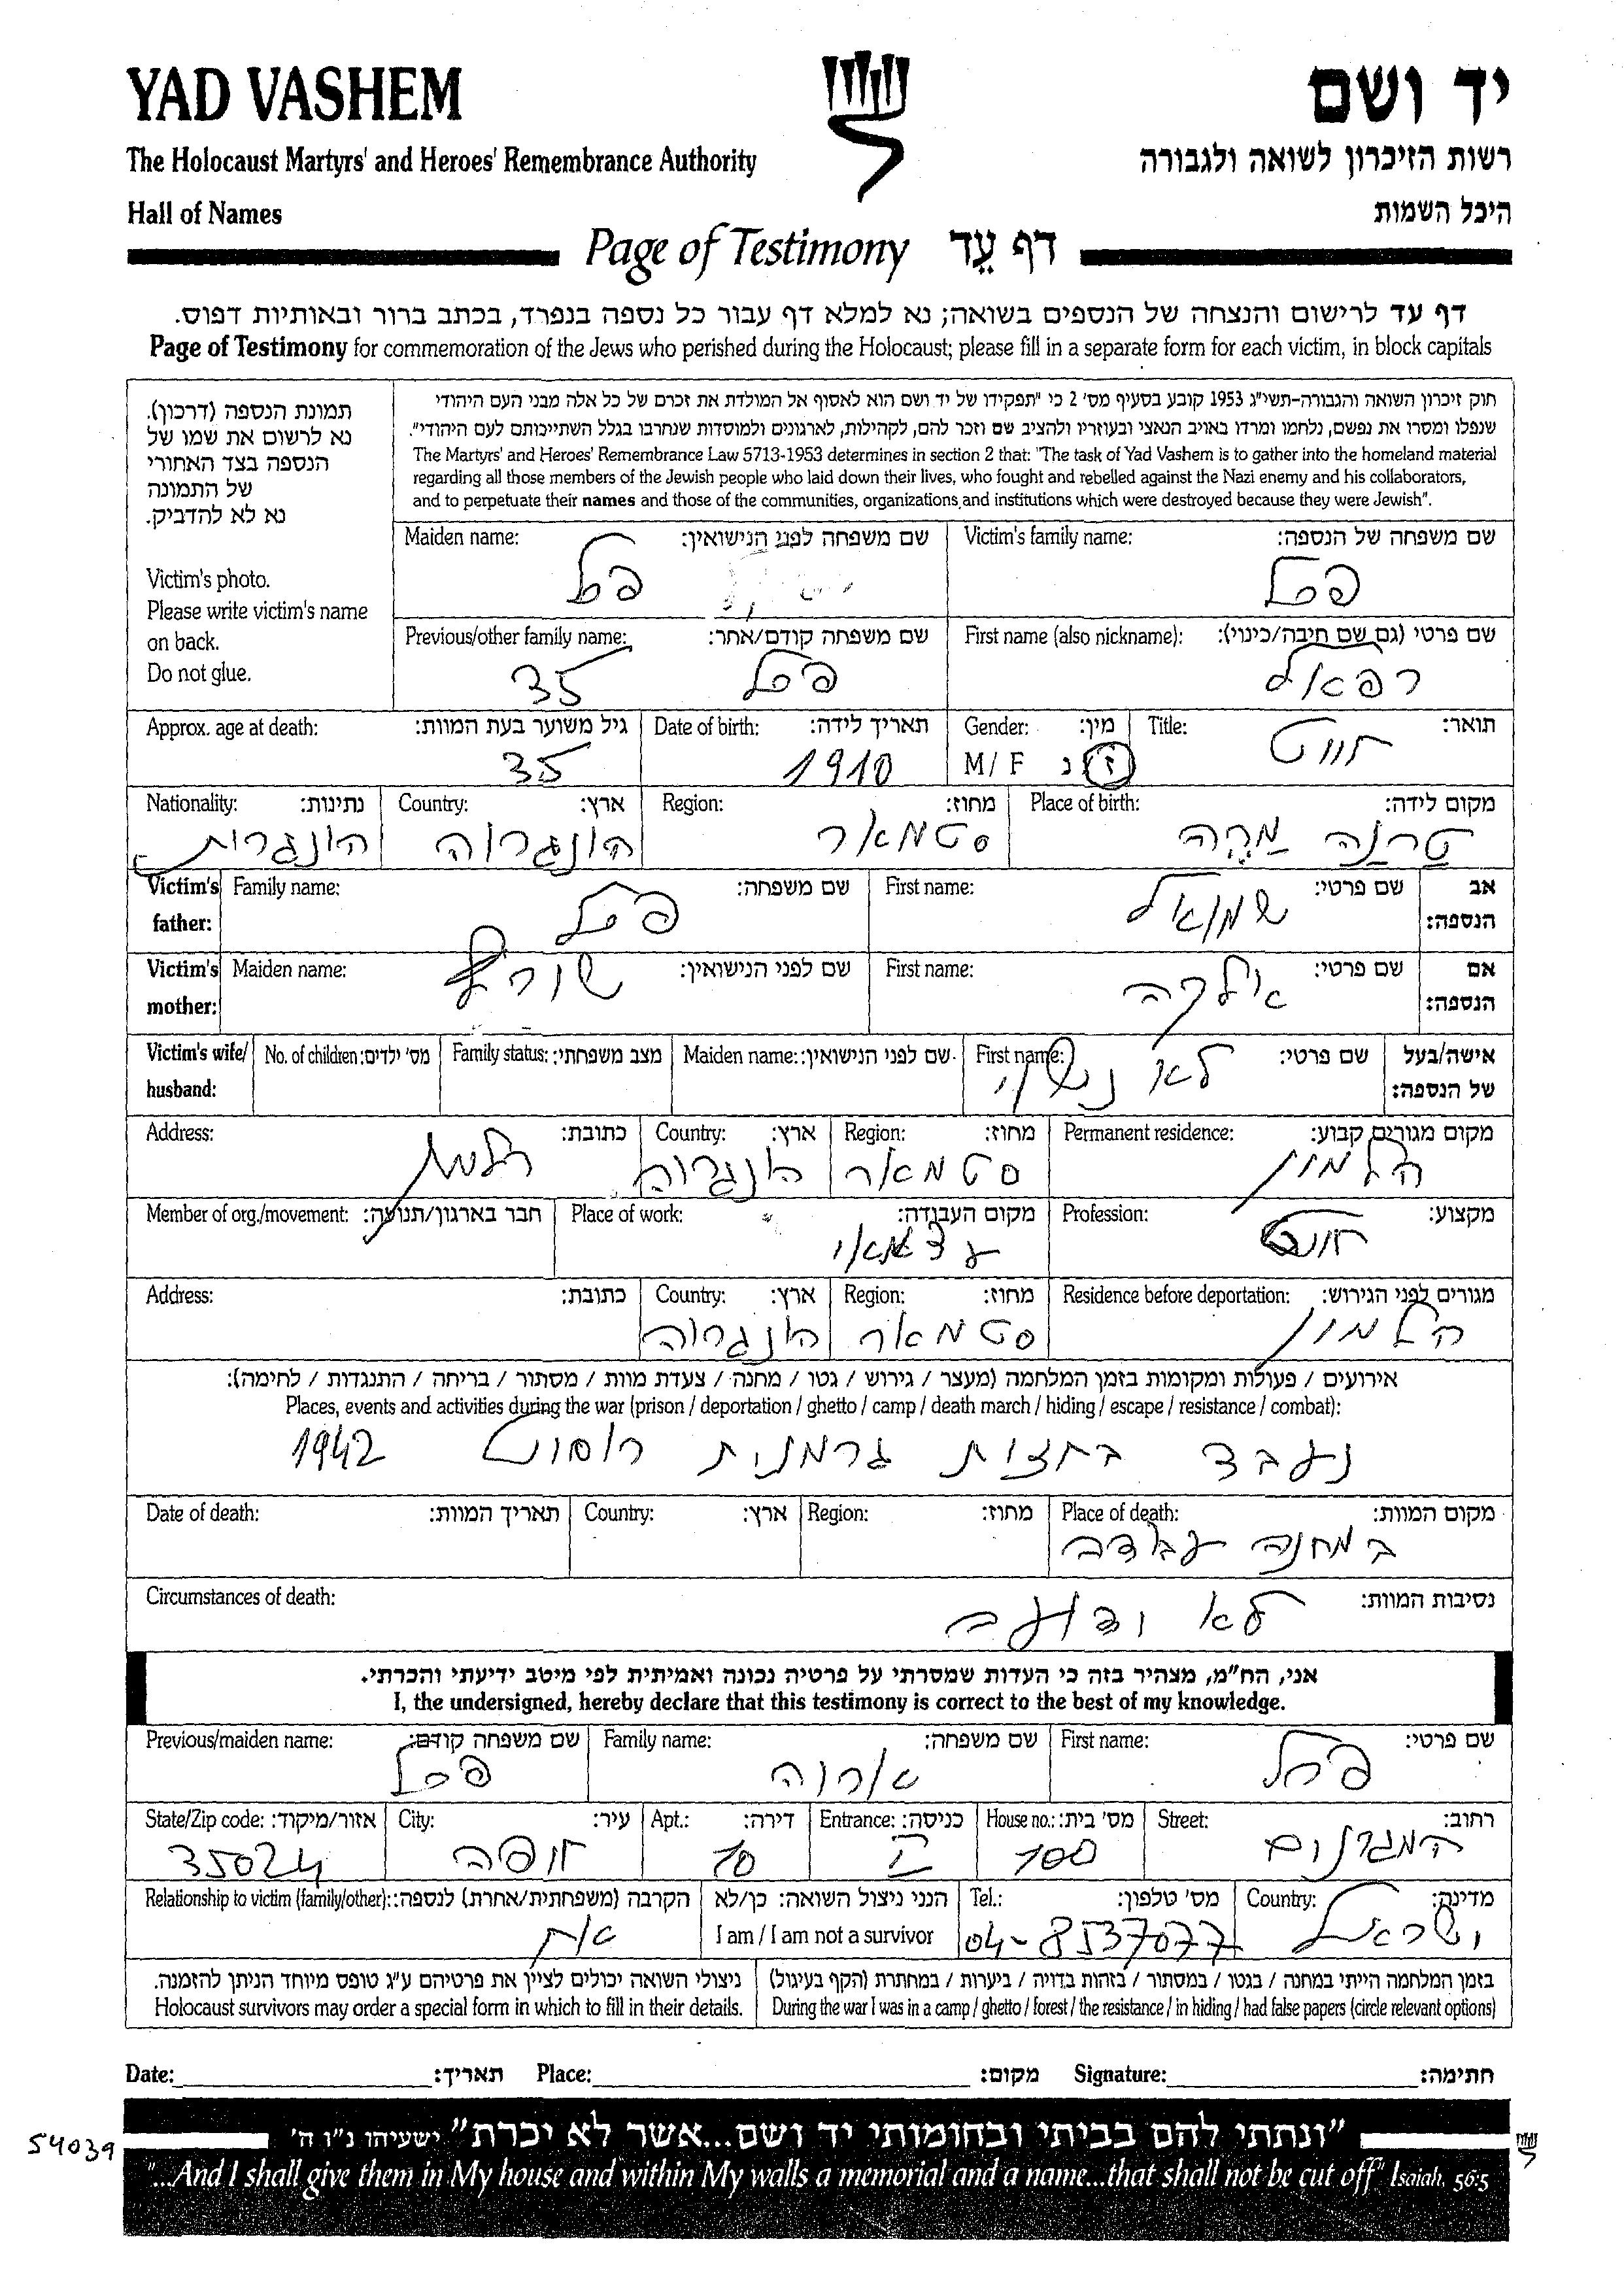 YAD VASHEM
יד ושם
The Holocaust Martyrs' and Heroes' Remembrance Authority
רשות הזיכרון לשואה ולגבורה
Hall of Names
היכל השמות
Page of Testimony דף עֵד
דף עד לרישום והנצחה של הנספים בשואה; נא למלא דף עבור כל נספה בנפרד, בכתב ברור ובאותיות דפוס.
Page of Testimony for commemoration of the Jews who perished during the Holocaust; please fill in a separate form for each victim, in block capitals
תמונת הנספה (דרכון).
נא לרשום את שמו של
הנספה בצד האחורי
של התמונה
נא לא להדביק.
Victim's photo.
Please write victim's name
on back.
Do not glue.
חוק זיכרון השואה והגבורה-תשי"ג 1953 קובע בסעיף מס' 2 כי "תפקידו של יד ושם הוא לאסוף אל המולדת את זכרם של כל אלה מבני העם היהודי
שנפלו ומסרו את נפשם, נלחמו ומרדו באויב הנאצי ובעוזריו ולהציב שם וזכר להם, לקהילות, לארגונים ולמוסדות שנחרבו בגלל השתייכותם לעם היהודי".
The Martyrs' and Heroes' Remembrance Law 5713-1953 determines in section 2 that: "The task of Yad Vashem is to gather into the homeland material
regarding all those members of the Jewish people who laid down their lives, who fought and rebelled against the Nazi enemy and his collaborators,
and to perpetuate their names and those of the communities, organizations and institutions which were destroyed because they were Jewish".
Victim's family name: שם משפחה של הנספה:
Maiden name: שם משפחה לפני הנישואין:
First name (also nickname): שם פרטי (גם שם חיבה/כינוי):
רפאל
Previous/other family name: שם משפחה קודם/אחר:
35
Title: תואר:
חייט
Gender: מין:
M/ F ז נ
Date of birth: תאריך לידה:
1910
Approx. age at death: גיל משוער בעת המוות:
35
Place of birth: מקום לידה:
Region: מחוז:
סטמאר
Country: ארץ:
הונגריה
Nationality: נתינות:
הונגרית
Victim's father: אב הנספה:
First name: שם פרטי:
שמואל
Family name: שם משפחה:
Victim's mother: אם הנספה:
First name: שם פרטי:
אילקה
Maiden name: שם לפני הנישואין:
Victim's wife/ husband: אישה/בעל של הנספה:
First name: שם פרטי:
לא נשוי
Maiden name: שם לפני הנישואין:
Family status: מצב משפחתי:
No. of children: מס' ילדים:
Permanent residence: מקום מגורים קבוע:
הלמין
Region: מחוז:
סטמאר
Country: ארץ:
הונגריה
Address: כתובת:
Profession: מקצוע:
חייט
Place of work: מקום העבודה:
עצמאי
Member of org./movement: חבר בארגון/תנועה:
Residence before deportation: מגורים לפני הגירוש:
הלמין
Region: מחוז:
סטמאר
Country: ארץ:
הונגריה
Address: כתובת:
אירועים / פעולות ומקומות בזמן המלחמה (מעצר / גירוש / גטו / מחנה / צעדת מוות / מסתור / בריחה / התנגדות / לחימה):
Places, events and activities during the war (prison / deportation / ghetto / camp / death march / hiding / escape / resistance / combat):
נעבד בחזית גרמנית 1942
Place of death: מקום המוות:
במחנה עבודה
Region: מחוז:
Country: ארץ:
Date of death: תאריך המוות:
Circumstances of death: נסיבות המוות:
לא ידוע
אני, הח"מ, מצהיר בזה כי העדות שמסרתי על פרטיה נכונה ואמיתית לפי מיטב ידיעתי והכרתי.
I, the undersigned, hereby declare that this testimony is correct to the best of my knowledge.
First name: שם פרטי:
Family name: שם משפחה:
Previous/maiden name: שם משפחה קודם:
Street: רחוב:
המגינים
House no.: מס' בית:
100
Entrance: כניסה:
Apt.: דירה:
10
City: עיר:
חיפה
State/Zip code: אזור/מיקוד:
35024
Country: מדינה:
ישראל
Tel.: מס' טלפון:
04-8537077
הנני ניצול השואה: כן/לא
I am / I am not a survivor
Relationship to victim (family/other): הקרבה (משפחתית/אחרת) לנספה:
אח
בזמן המלחמה הייתי במחנה / בגטו / במסתור / בזהות בדויה / ביערות / במחתרת (הקף בעיגול)
During the war I was in a camp / ghetto / forest / the resistance / in hiding / had false papers (circle relevant options)
ניצולי השואה יכולים לציין את פרטיהם ע"ג טופס מיוחד הניתן להזמנה.
Holocaust survivors may order a special form in which to fill in their details.
Date: תאריך: Place: מקום: Signature: חתימה:
"ונתתי להם בביתי ובחומותי יד ושם...אשר לא יכרת" ישעיהו נ"ו ה'
54039
"...And I shall give them in My house and within My walls a memorial and a name...that shall not be cut off." Isaiah, 56:5